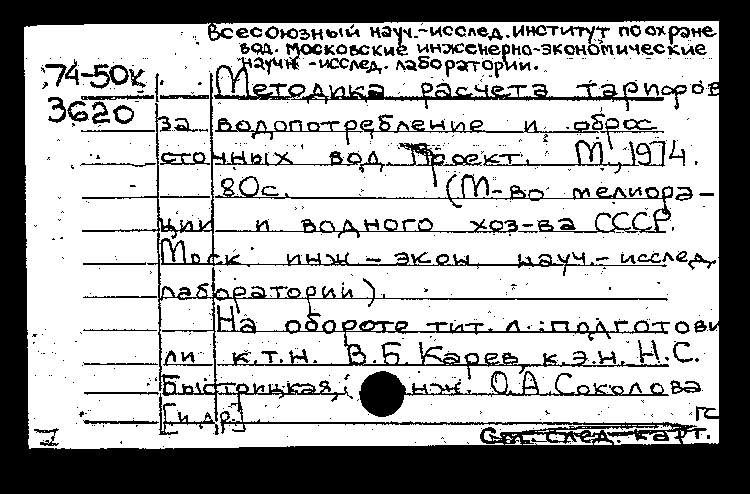 Всесоюзный науч.-исслед. институт по охране
вод. Московские инженерно-экономические
научн-исслед. лаборатории.
74-50к
3620
Методика расчета тарифов
за водопотребление и сброс
сточных вод. Проект. М., 1974.
80с. (М-во мелиора-
ции и водного хоз-ва СССР.
Моск. инж-экон. науч.-исслед.
лаборатории).
На обороте тит. л.: подготови
ли к.т.н. В.Б. Карев, к.э.н. Н.С.
Быстрицкая, нж. О.А. Соколова
[и др.]
гс
См. след. карт.